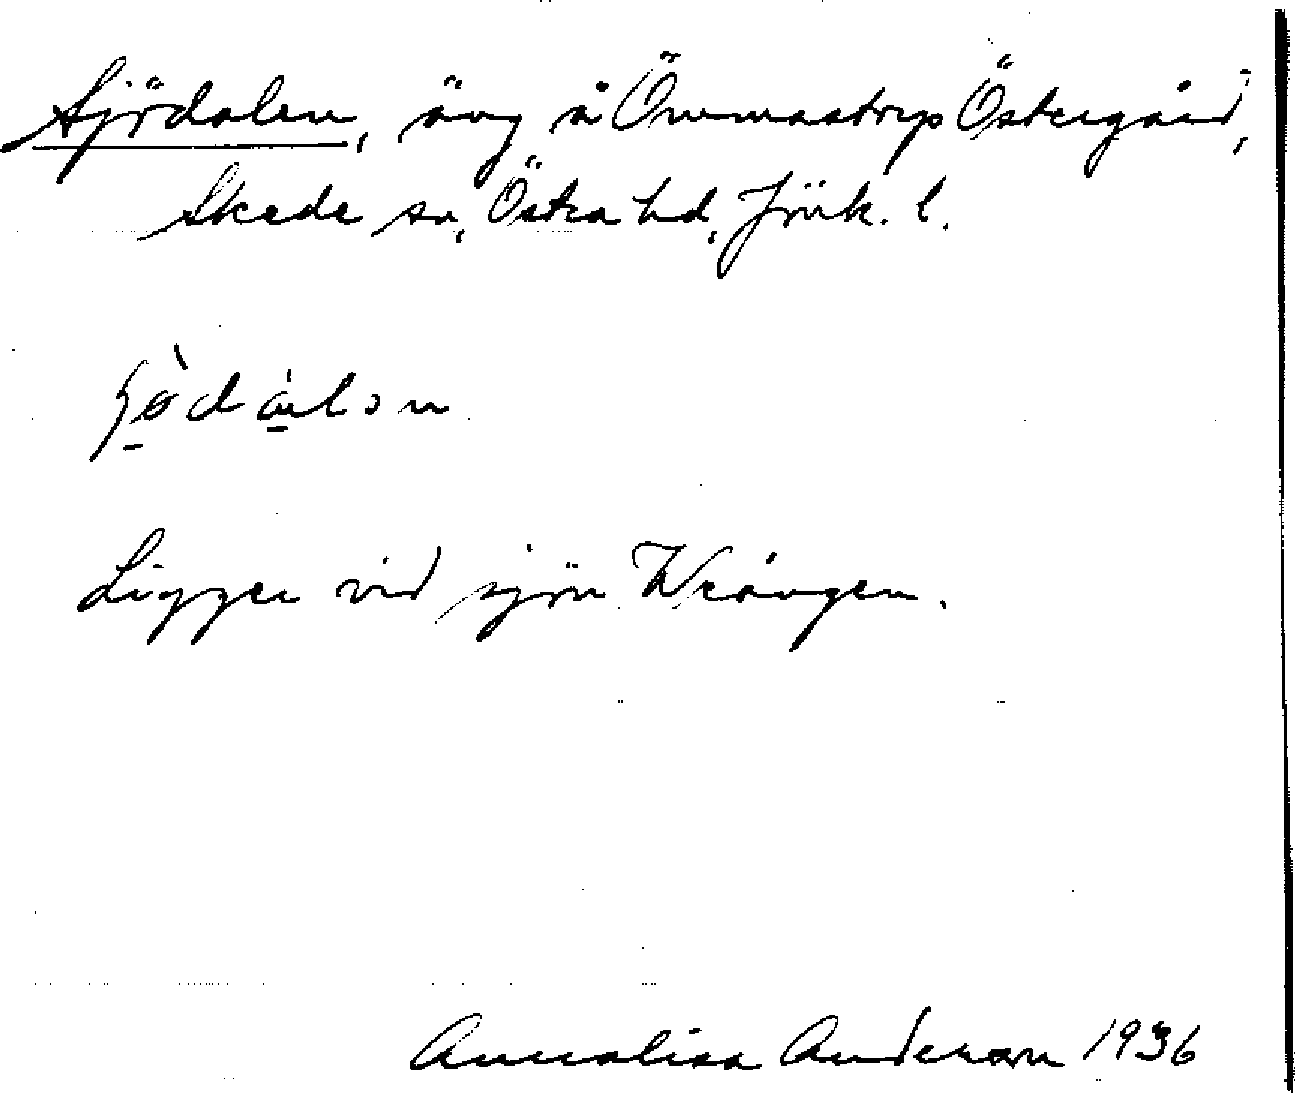 Sjödalen, äng å Ömmastorp Östergård,
Skede sn, Östra hd, Jönk. l.
Ligger vid sjön Wrången.
Annalisa Anderson 1936